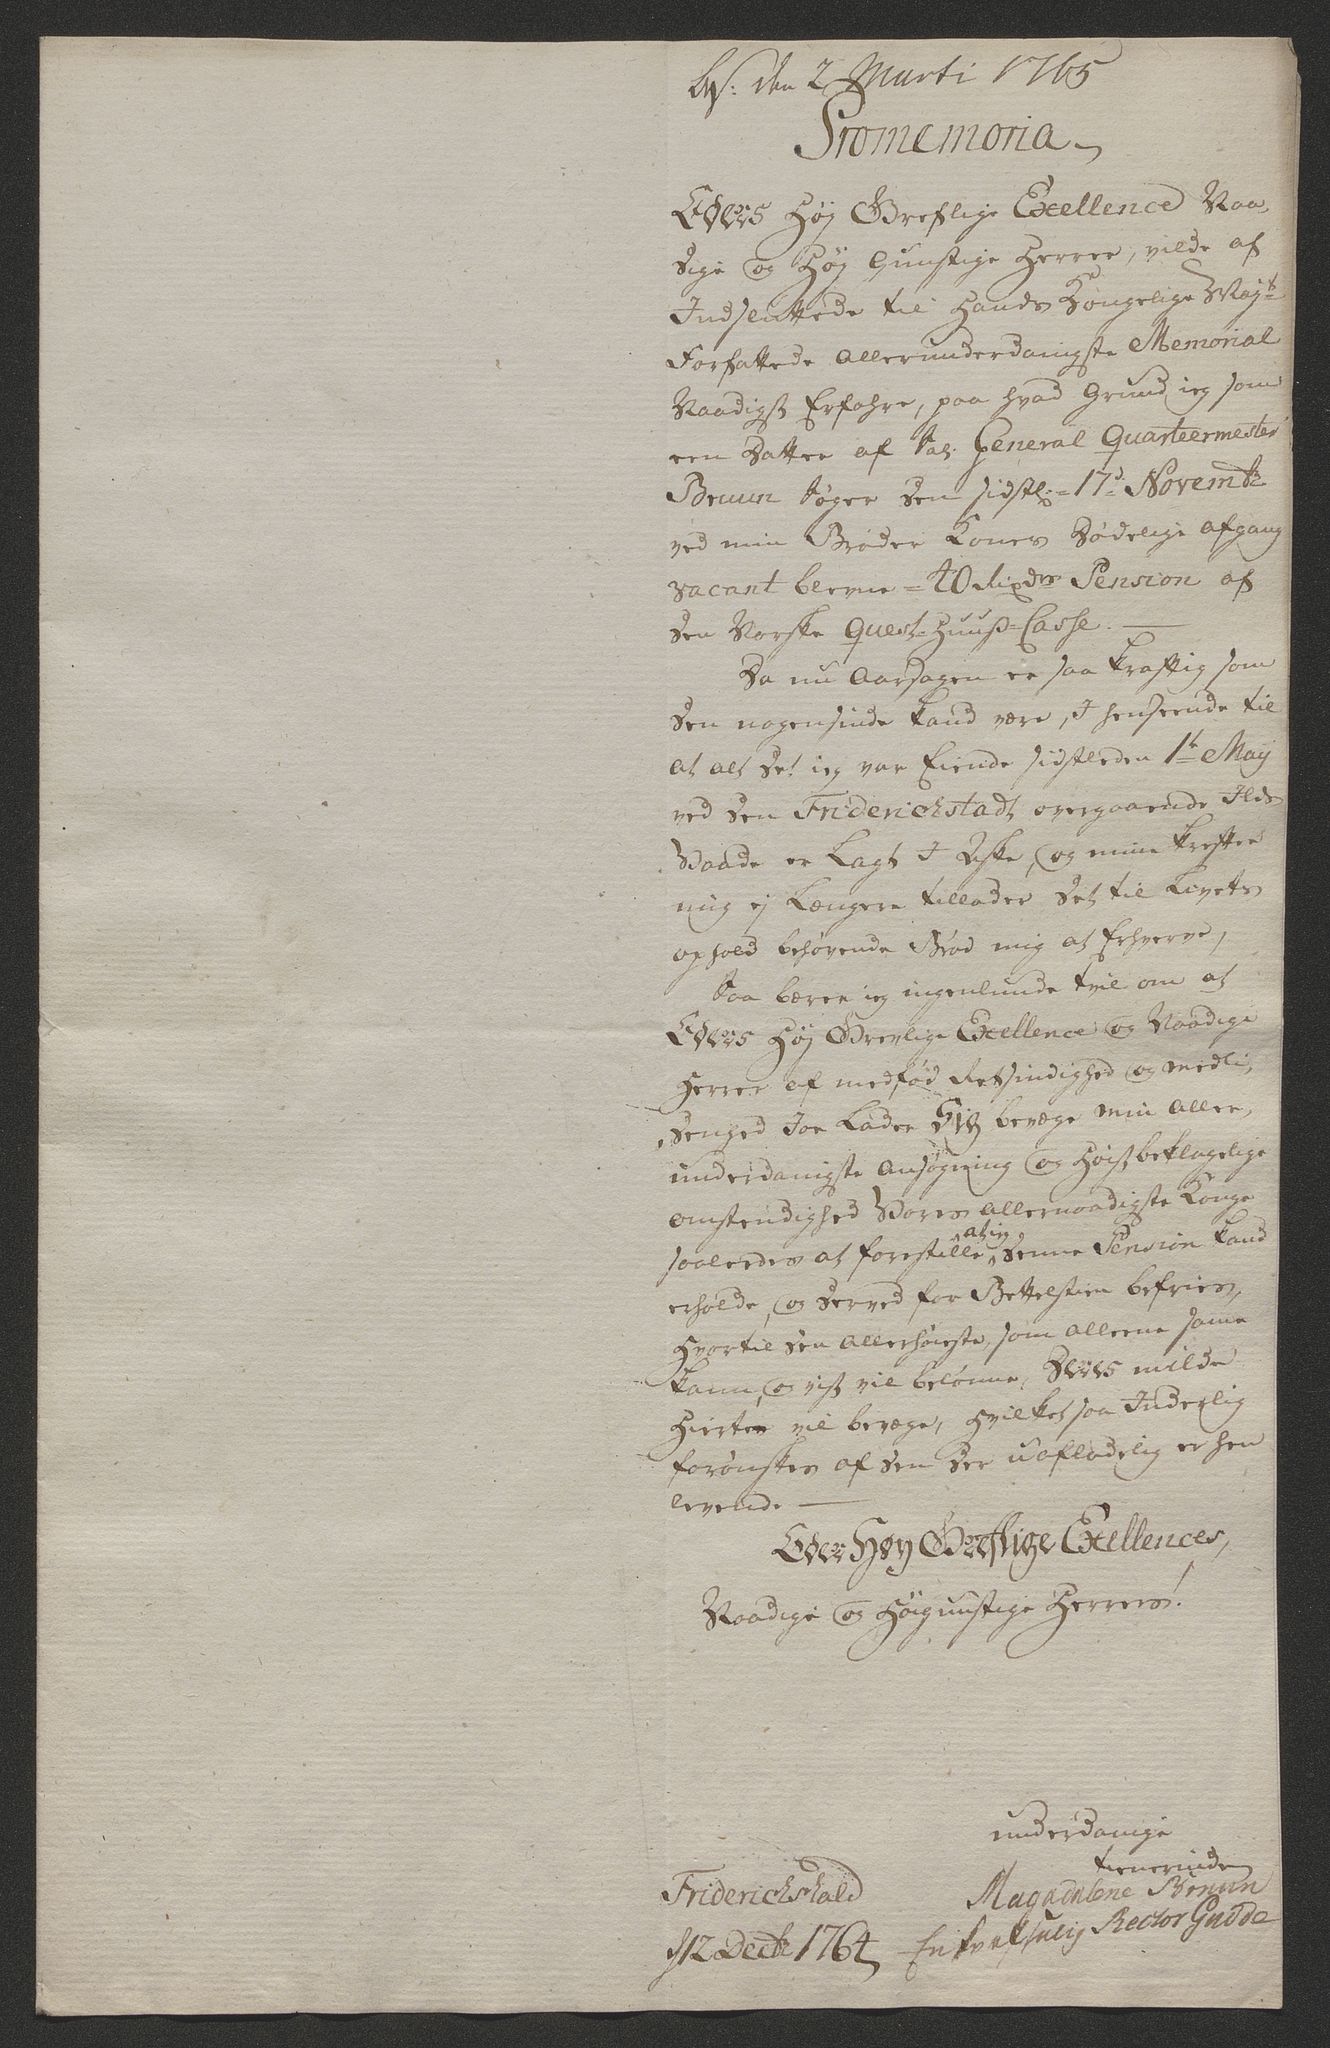 den 2 Marti 1765
Promemoria
Eders Høj Greflige Excellence Naa-
dige og Høj Gunstige Herrer, vilde af
Indsluttede til Hands Kongelige Mayts
Forfattede allerunderdanigste Memorial
Naadigst Erfahre, paa hvad Grund ieg som
een Datter af Sal: General Quarteermester
Bruun søger den sidstl: 17d Novembr
ved min Broder Kones Dødelige afgang
vacant blevne 40 Rixdrs Pension af
den Norske Quest-Huuss-Casse.
Da nu Aarsagen er saa kraftig som
den nogensinde kand være, I henseende til
at alt det ieg var Eiende sidstleden 1te Maij
ved den Friderichstadt overgaaende Ilds
Vaade er Lagt I Aske, og mine kreffter
mig ej Længere tillader det til Livets
ophold behøvende Brød mig at Erhverve,
Saa bærer ieg ingenlunde tvil om at
Eders Høj Grevlige Excellence og Naadige
Herrer af medfød Retsindighed og medli-
denhed Joe Lader Sig bevæge min aller-
underdanigste Ansøgning og Høistbeklagelige
omstendighed Vores allernaadigste Konge
saaleedes at forestille, at ieg denne Pension kand
erholde, og derved for Bettelstien befries,
Hvortil den allerhøieste, som alleene same
kand, og vist vil belønne, Deres milde
Hierter vil bevæge, Hvilket saa Inderlig
forønskes af den der uafladelig er hen
levende
Eders Høy Grefflige Excellences,
Naadige og Høigunstige Herrers!
underdanige
tienerinde
Friderichshald
Magdalene Bruun
d 12 Decbr 1764
Enke Rector Gudde